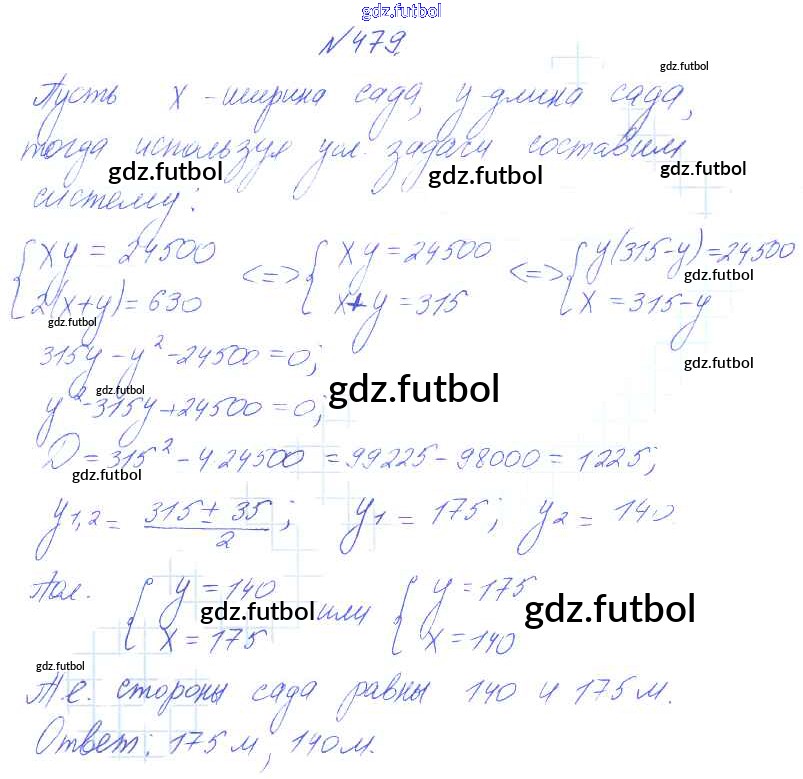 gdz.futbol
№479.
gdz.futbol
Пусть x - ширина сада, y - длина сада,
тогда используя усл. задачи составим
gdz.futbol gdz.futbol gdz.futbol
систему:
{ xy = 24500 <=> { xy = 24500 <=> { y(315-y)=24500
gdz.futbol
2(x+y)=630 x+y=315 x=315-y
gdz.futbol
315y-y²-24500=0;
gdz.futbol
gdz.futbol gdz.futbol
y²-315y+24500=0;
D=315²-4·24500=99225-98000=1225;
gdz.futbol
y1,2 = (315±35)/2; y1=175; y2=140.
Пол. { y=140 или { y=175
gdz.futbol gdz.futbol
x=175 x=140
gdz.futbol
Т.е. стороны сада равны 140 и 175 м.
Ответ: 175 м, 140 м.